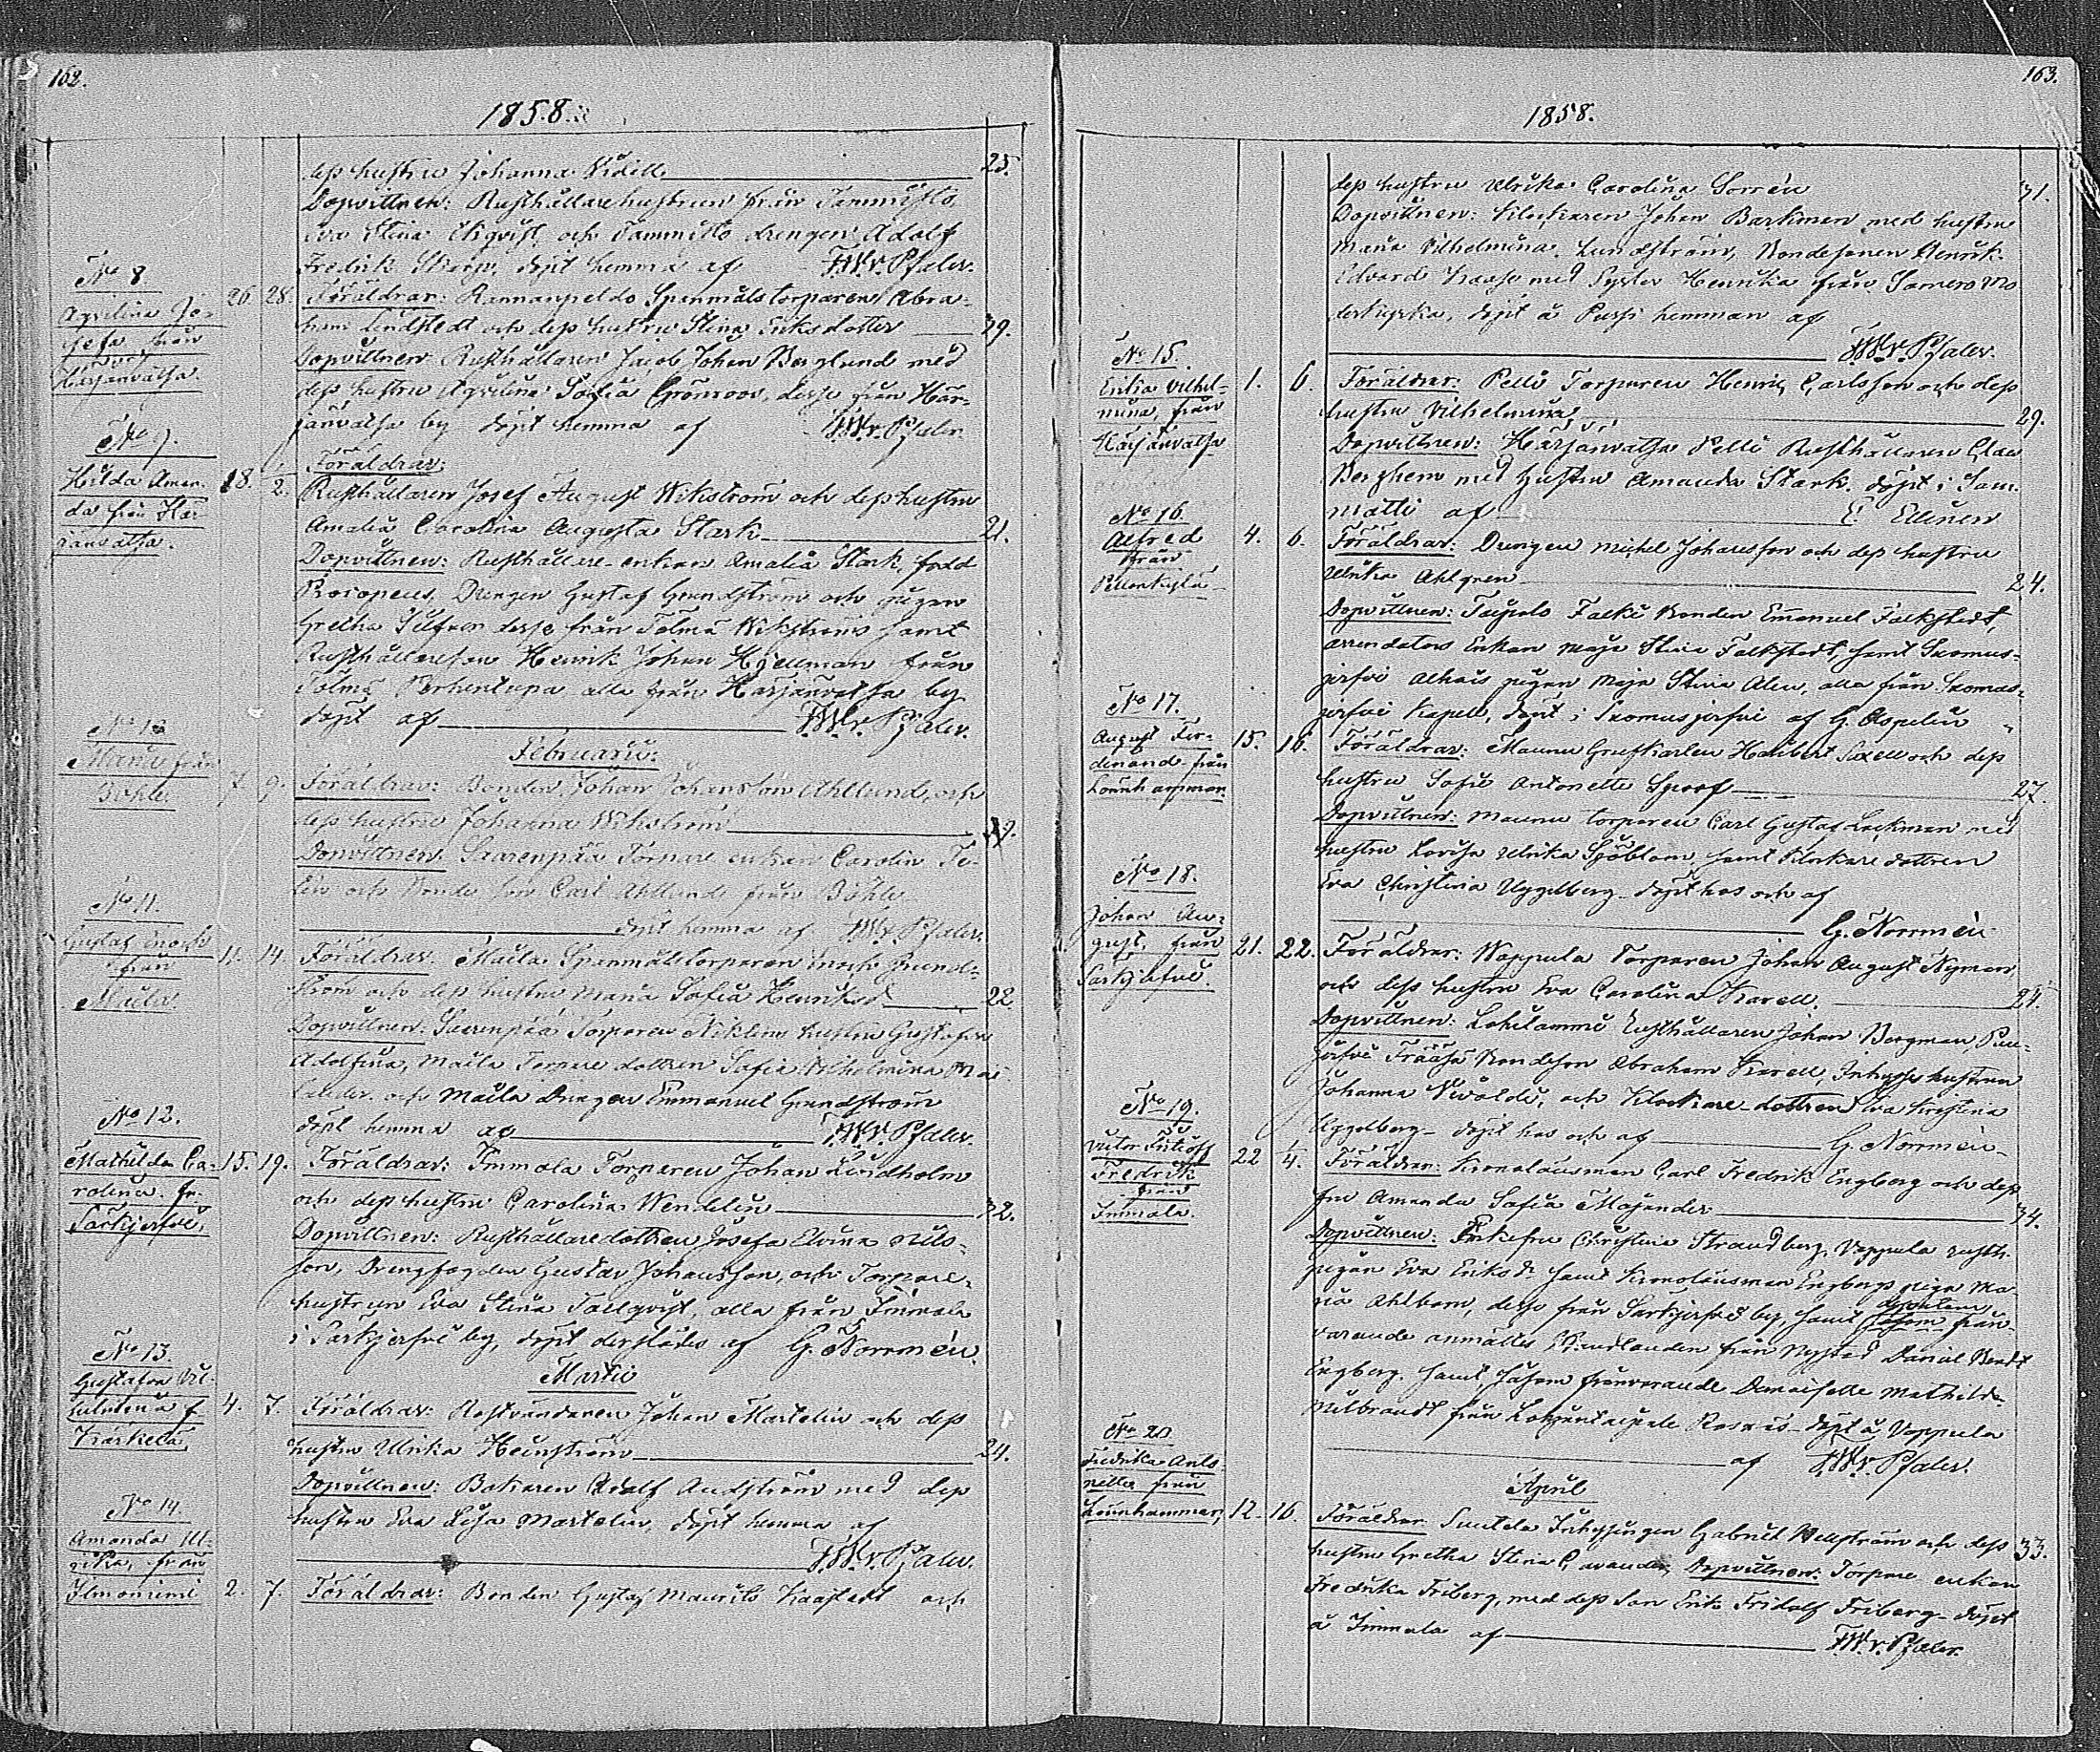 162.
1858.
dess hustru Johanna Widell 25.
Dopvittnen: Rusthållarehustrun från Tammisto,
Eva Stina och Tammisto drengen Adolf
Fredrik döpt hemma af F.W.v. Pfaler.
No 8
Aqvilina Jo-
sefa från
Härjänvatsa.
26. 28. Föräldrar: Spanmålstorparen Abra-
ham Lindstedt och dess hustru Stina Eriksdotter 39.
Dopvittnen Rusthållaren Jacob Johan Berglund med
dess hustru Aqvilina Sofia Grönroos, desse från Här-
jänvatsa by döpt hemma af F.W.v. Pfaler.
No 9.
Hilda Aman-
da från Här-
jänvatsa.
18. 1/2. Föräldrar:
Rusthållaren Josef August Wikström och dess hustru
Amalia Carolina Augusta Stark 21.
Dopvittnen: Rusthållare-enkan Amalia Stark, född
Procopeus, Drengen Gustaf Grundström och pigan
Gretha desse från Tölmä Wikströms samt
Rusthållareson Henrik Johan Hjellman från
Tölmä Perhentupa alla från Härjänvatsa by
döpt af F.W.v. Pfaler.
Februarii.
No 10
Maria från
Böhle
7. 9. Föräldrar: Bonden Johan Johansson Ahllund, och
dess hustru Johanna Wikström 39.
Dopvittnen: Saarenpää Torpare enkan Carolin
och Bonde son Carl Ahllund från Böhle
döpt hemma af F.W.v. Pfaler.
No 11.
Gustaf Enoch
från
Maila
11. 14. Föräldrar: Maila Spanmålstorparen Enoch Grund-
ström och dess hustru Maria Sofia Henriksd 22.
Dopvittnen: Saarenpää Torparen Niklins hustru Gustafva
Adolfina, Maila Torpare dottren Sofia Wilhelmina
och Maila Drengen Emmanuel Grundström
döpt hemma af F.W.v. Pfaler.
No 12.
Mathilda Ca-
rolina. fr.
Särkjerfvi.
15. 19. Föräldrar: Immola Torparen Johan Lindholm
och dess hustru Carolina Wendelin 32.
Dopvittnen: Rusthållaredottren Josefa Elvina Nils-
son, Drengfogden Gustav Johansson, och Torpare-
hustrun Eva Stina Tallqvist, alla från Immola
i Särkjerfvi by, döpt derstädes af G. Norrmén.
Martii
No 13.
Gustafva Vil-
helmina f.
Kärkelä
4. 7. Föräldrar: Rostvändaren Johan Martelin och dess
hustru Ulrika Heinström 24.
Dopvittnen: Bokaren Adolf Andström med dess
hustru Eva Lisa Martelin, döpt hemma af
F.W.v. Pfaler.
No 14.
Amanda Ul-
rika, från
Ilmoniemi
2. 7. Föräldrar: Bonden Gustaf Maurits Kaastedt och
163.
1858.
dess hustru Ulrika Carolina Sorrén 31.
Dopvittnen: Klockaren Johan Barkman med hustru
Maria Vilhelmina Lundström, Bondesonen Henrik
Edvard med Syster Henrika från Samero Mo
derkyrka, döpt å hemman af
F.W.v. Pfaler.
No 15.
Emilia Vilhel-
mina, från
Härjänvatsa
1. 6. Föräldrar: Pelli Torparen Henric Carlsson och dess
hustru Vilhelmina 29.
Dopvittnen: Härjänvatsa Pelli Rusthållaren Claes
Berghem med hustru Amanda Stark. döpt i Sam-
matti af E. Ellinen
No 16
Alfred
från
Pillonkylä
4. 6. Föräldrar: Drengen Michel Johansson och dess hustru
Ulrika Ahlgren 24.
Dopvittnen: Taipols Falki Bonden Emanuel Falkstedt,
arrendators Enkan Maja Stina Falkstedt, samt Suomus-
jerfvi pigan Maja Stina Alen, alla från Suomus-
jerfvi Kapell, döpt i Suomusjerfvi af G. Aspelin
No 17.
August Fer-
dinand från
Lönnhammar
15. 16. Föräldrar: Maunu Grufkarlen Heribert Sixell och dess
hustru Sofie Antonette Spoof 27.
Dopvittnen: Maunu torparen Carl Gustaf Lockman med
hustru Lovisa Ulrika Sjöblom, samt Klockare dottren
Eva Christina Uggelberg döpt hos och af
G. Norrmén
No 18.
Johan Au-
gust, från
Särkjerfvi.
21. 22. Föräldrar: Wappula Torparen Johan August Nyman
och dess hustru Eva Carolina Karell. 24.
Dopvittnen: Lohilammi Rusthållaren Johan Bergman,
jerfvi Bondeson Abraham Karell, Inhyses hustrun
Johanna och Klockare-dottren Eva Kristina
Uggelberg döpt hos och af G. Norrmén
No 19.
Victor Fritiof
Fredrik
från
Immola.
22. 4. Föräldrar: Kronolänsman Carl Fredrik Engberg och dess
fru Amanda Sofia Majander 34.
Dopvittnen: Enkefru Christina Strandberg, Vappula rusth.
pigan Eva Eriksdr. samt Kronolänsman Engbergs piga Ma-
ria Ahlbom, desse från Särkjerfvi by, samt såsom från-
varande anmältes från Nystad Daniel
Engberg. samt såsom frånvarande Demoiselle Mathilda
Milbrandt från döpt å Vappula
af F.W.v. Pfaler.
April
No 20
Fredrika Anto-
nette från
Lönnhammar,
12. 16. Föräldrar: Suntela Inhysingen Gabriel Wellström och dess 33.
hustru Gretha Stina Dopvittnen: Torpare enkan
Fredrika Friberg, med dess Son Erik Fridolf Friberg döpt
å Immola af F.W.v. Pfaler.